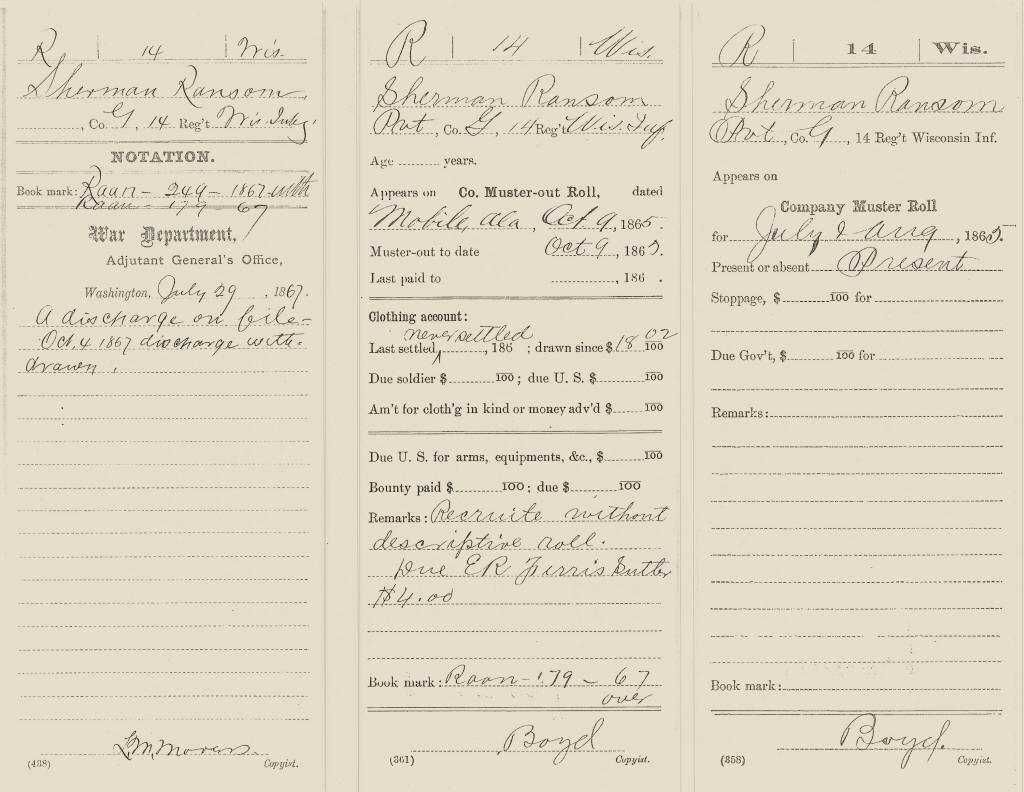 R | 14 | Wis.
Sherman Ransom
, Co. G, 14 Reg't Wis. Inf.
NOTATION.
Book mark: Raan - 249 - 1867 with
Raan - 179 - 67
War Department,
Adjutant General's Office,
Washington, July 29, 1867.
A discharge on file-
Oct. 4 1867 discharge with-
drawn.
Copyist.
(438)
R | 14 | Wis.
Sherman Ransom
Pvt, Co. G, 14 Reg't Wis. Inf.
Age years.
Appears on Co. Muster-out Roll, dated
Mobile, Ala, Oct 9, 1865.
Muster-out to date Oct 9, 1865.
Last paid to , 186 .
Clothing account:
never settled
Last settled , 186 ; drawn since $ 18 02/100
Due soldier $ 100; due U. S. $ 100
Am't for cloth'g in kind or money adv'd $ 100
Due U. S. for arms, equipments, &c., $ 100
Bounty paid $ 100; due $ 100
Remarks: Recruite without
descriptive roll.
Due E R Ferris Sutler
$4.00
Book mark: Raan - 179 - 67
over
Boyd
(361) Copyist.
R | 14 | Wis.
Sherman Ransom
Pvt, Co. G, 14 Reg't Wisconsin Inf.
Appears on
Company Muster Roll
for July & Aug, 1865.
Present or absent Present
Stoppage, $ 100 for
Due Gov't, $ 100 for
Remarks:
Book mark:
Boyd.
(358) Copyist.